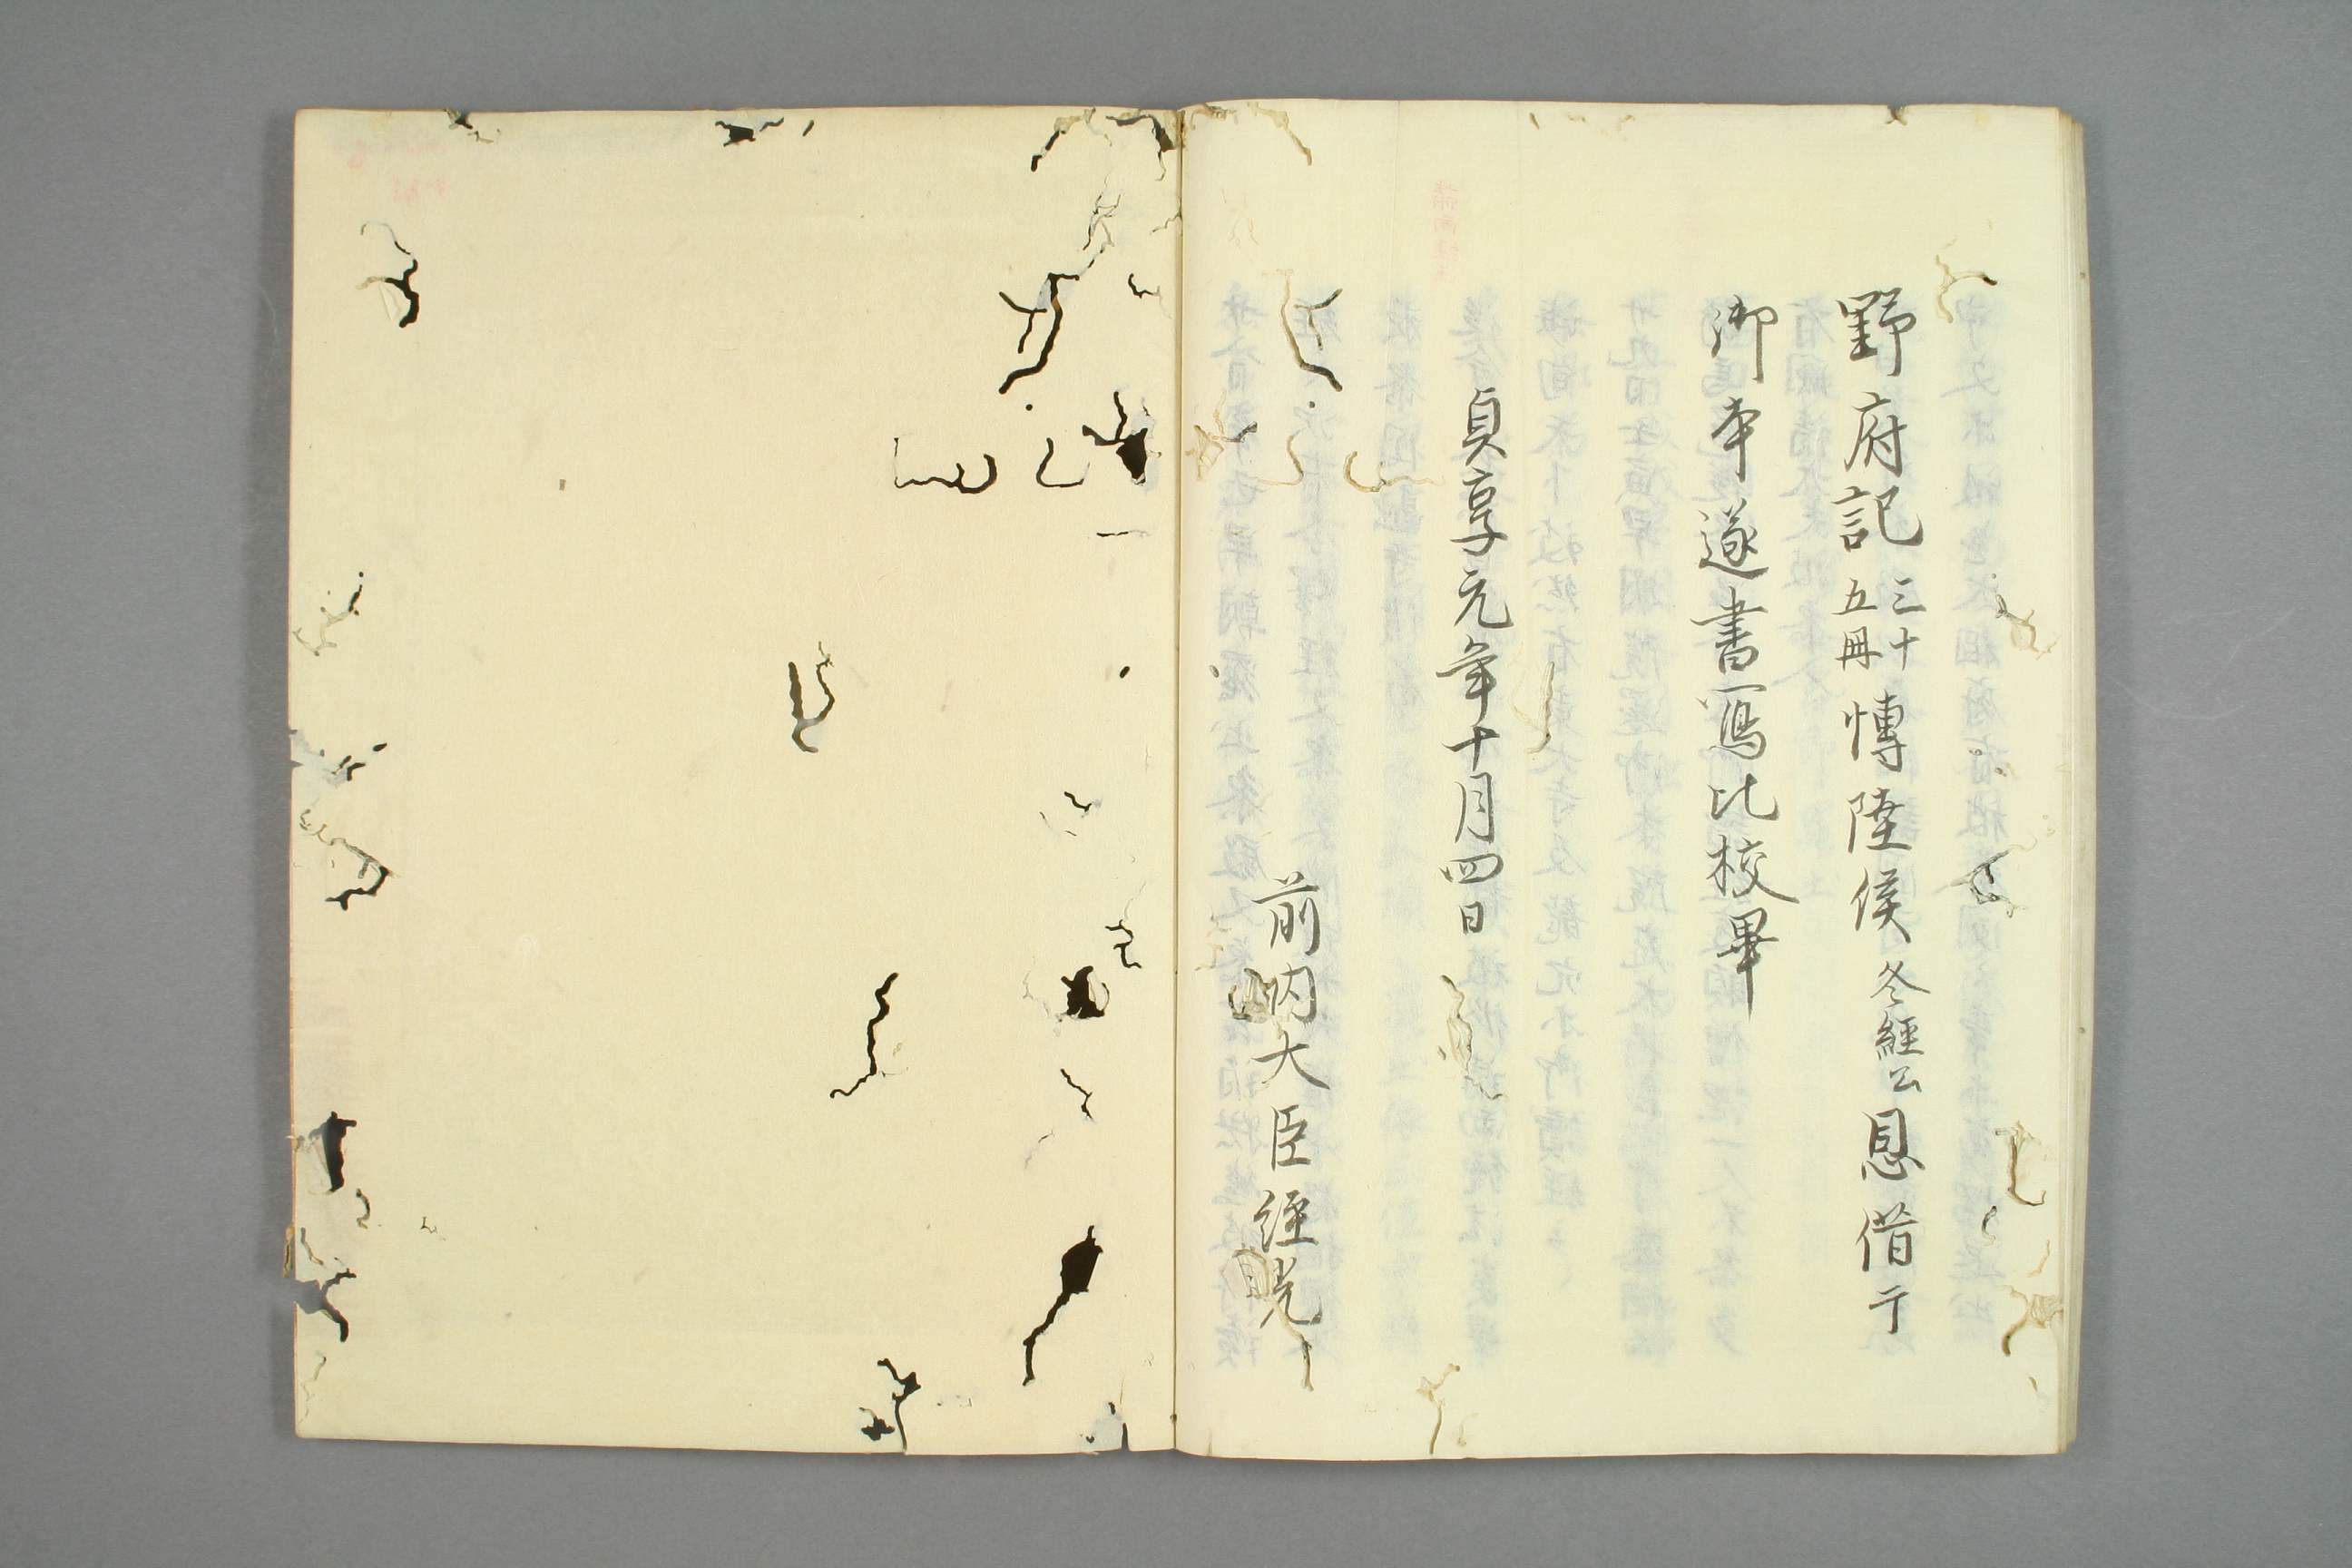 野府記三十五冊博陸侯冬經公恩借于
御本遂書寫比校畢
貞享元年十月四日
前内大臣經光